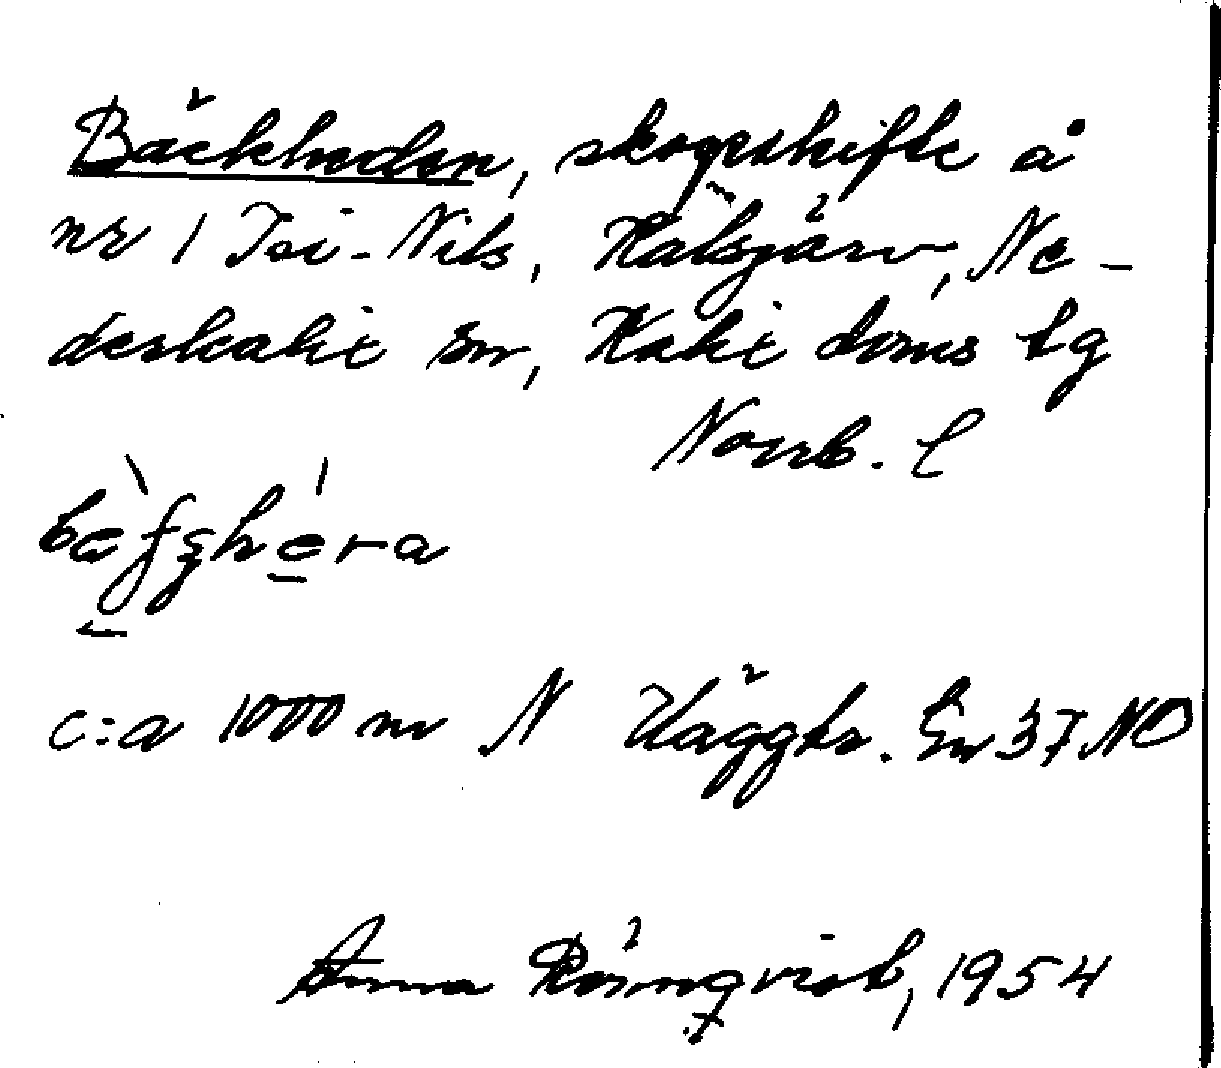 Bäckheden, skogsskifte å
nr 1 Isi-Nils, Kälsjärv, Ne-
derkalix sn, Kalix doms lg
Norrb. l
c:a 1000 m N Häggtr. En 37 NO
Anna Rönnqvist, 1954